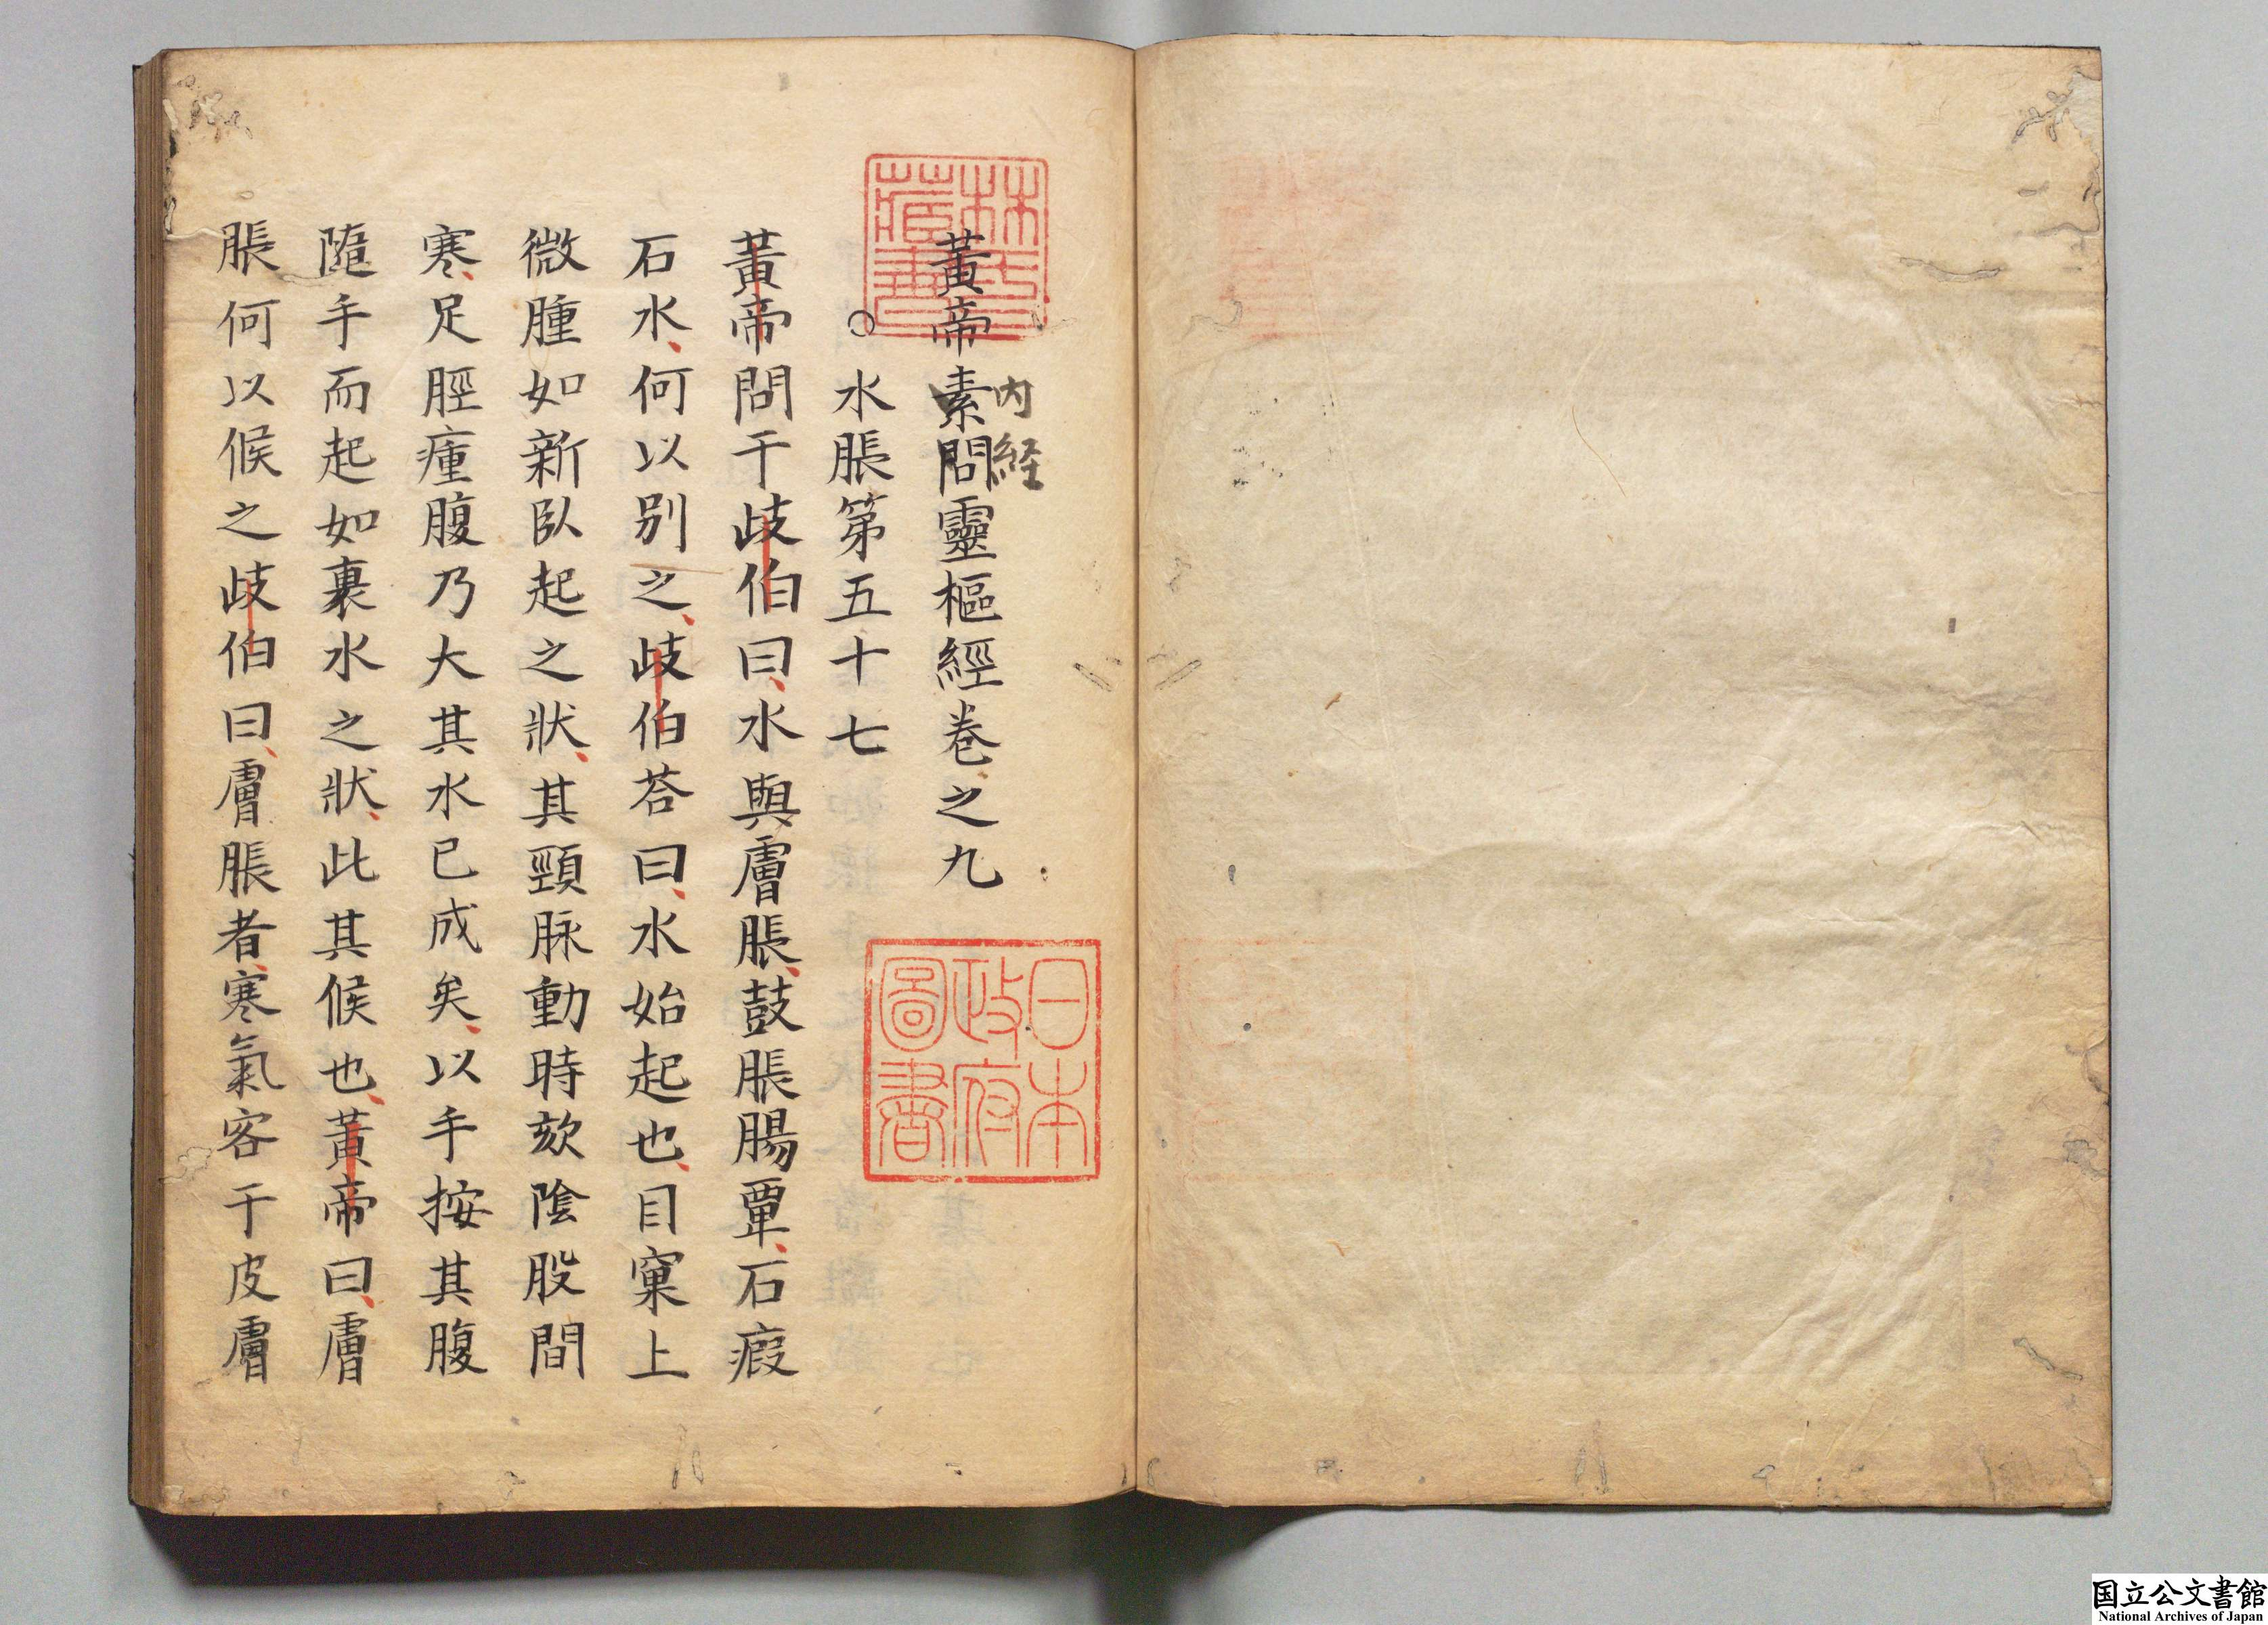 黃帝素問靈樞經卷之九
内経
○水脹第五十七
黃帝問干歧伯曰水與膚脹鼓脹腸覃石瘕
石水何以別之歧伯荅曰水始起也目窠上
微腫如新臥起之狀其頸脉動時欬陰股間
寒足脛瘇腹乃大其水已成矣以手按其腹
隨手而起如裹水之狀此其候也黃帝曰膚
脹何以候之歧伯曰膚脹者寒氣客于皮膚
林氏藏書
日本政府圖書
国立公文書館
National Archives of Japan